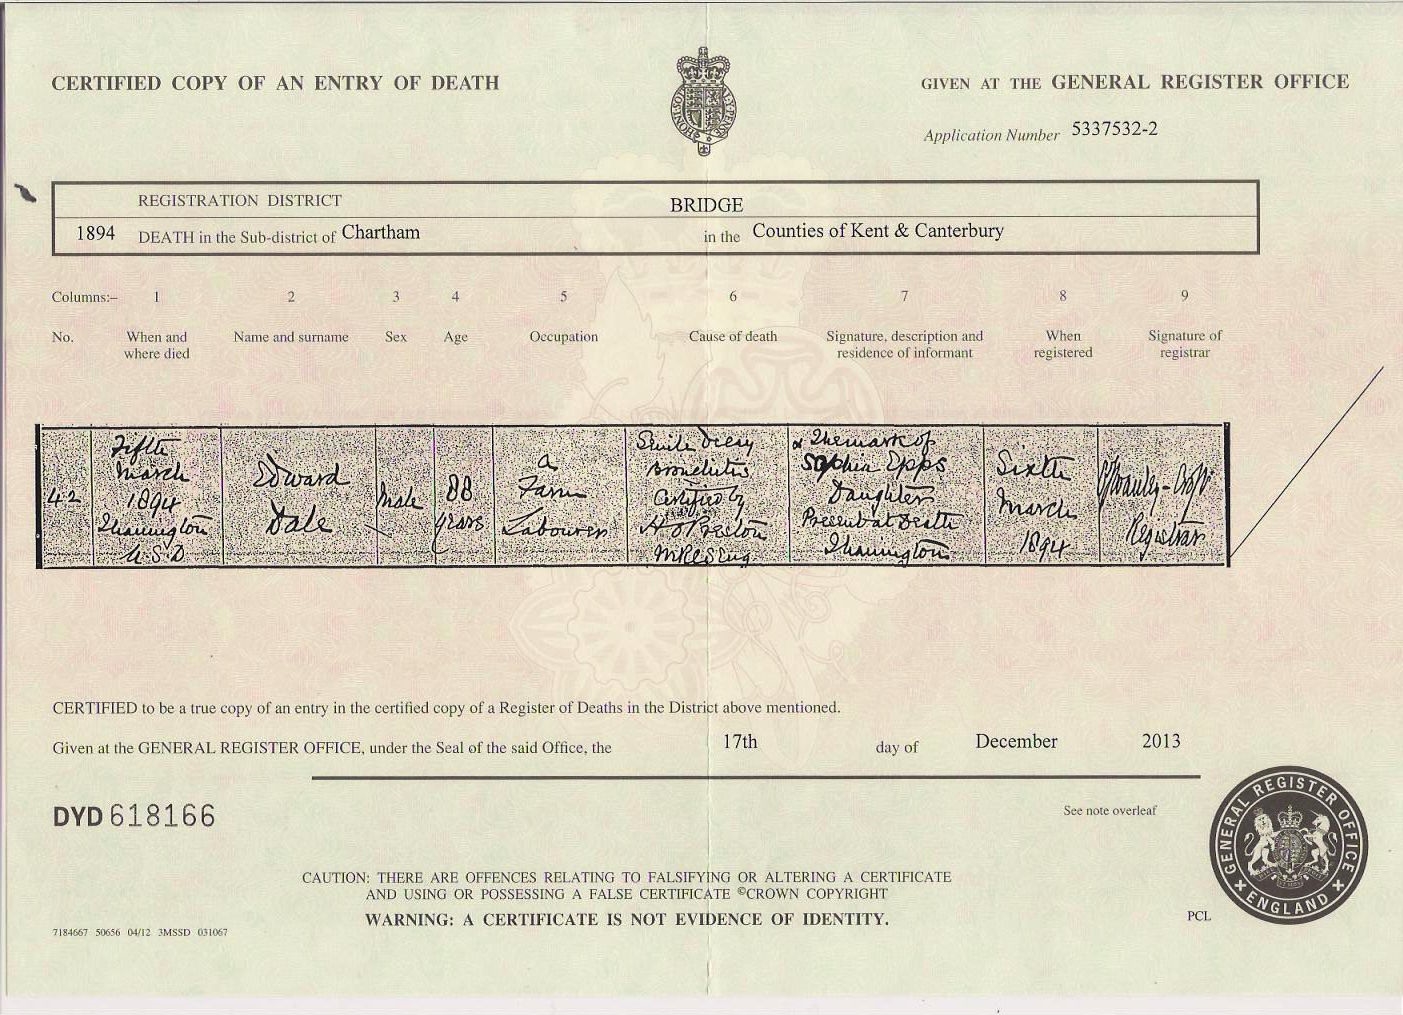 CERTIFIED COPY OF AN ENTRY OF DEATH
GIVEN AT THE GENERAL REGISTER OFFICE
Application Number 5337532-2
REGISTRATION DISTRICT BRIDGE
1894 DEATH in the Sub-district of Chartham in the Counties of Kent & Canterbury
Columns:- 1 2 3 4 5 6 7 8 9
No.
When and
where died
Name and surname
Sex
Age
Occupation
Cause of death
Signature, description and
residence of informant
When
registered
Signature of
registrar
42
Fifth
March
1894
Thannington
U.S.D
Edward
Dale
Male
88
years
a
Farm
Labourer
Senile Decay
Bronchitis
Certified by
MRCS Eng
The mark of
Sophia Epps
Daughter
Present at Death
Thannington
Sixth
March
1894
Registrar
CERTIFIED to be a true copy of an entry in the certified copy of a Register of Deaths in the District above mentioned.
Given at the GENERAL REGISTER OFFICE, under the Seal of the said Office, the 17th day of December 2013
DYD 618166
See note overleaf
CAUTION: THERE ARE OFFENCES RELATING TO FALSIFYING OR ALTERING A CERTIFICATE
AND USING OR POSSESSING A FALSE CERTIFICATE ©CROWN COPYRIGHT
WARNING: A CERTIFICATE IS NOT EVIDENCE OF IDENTITY.
7184667 50656 04/12 3MSSD 031067
PCL
GENERAL REGISTER OFFICE
ENGLAND